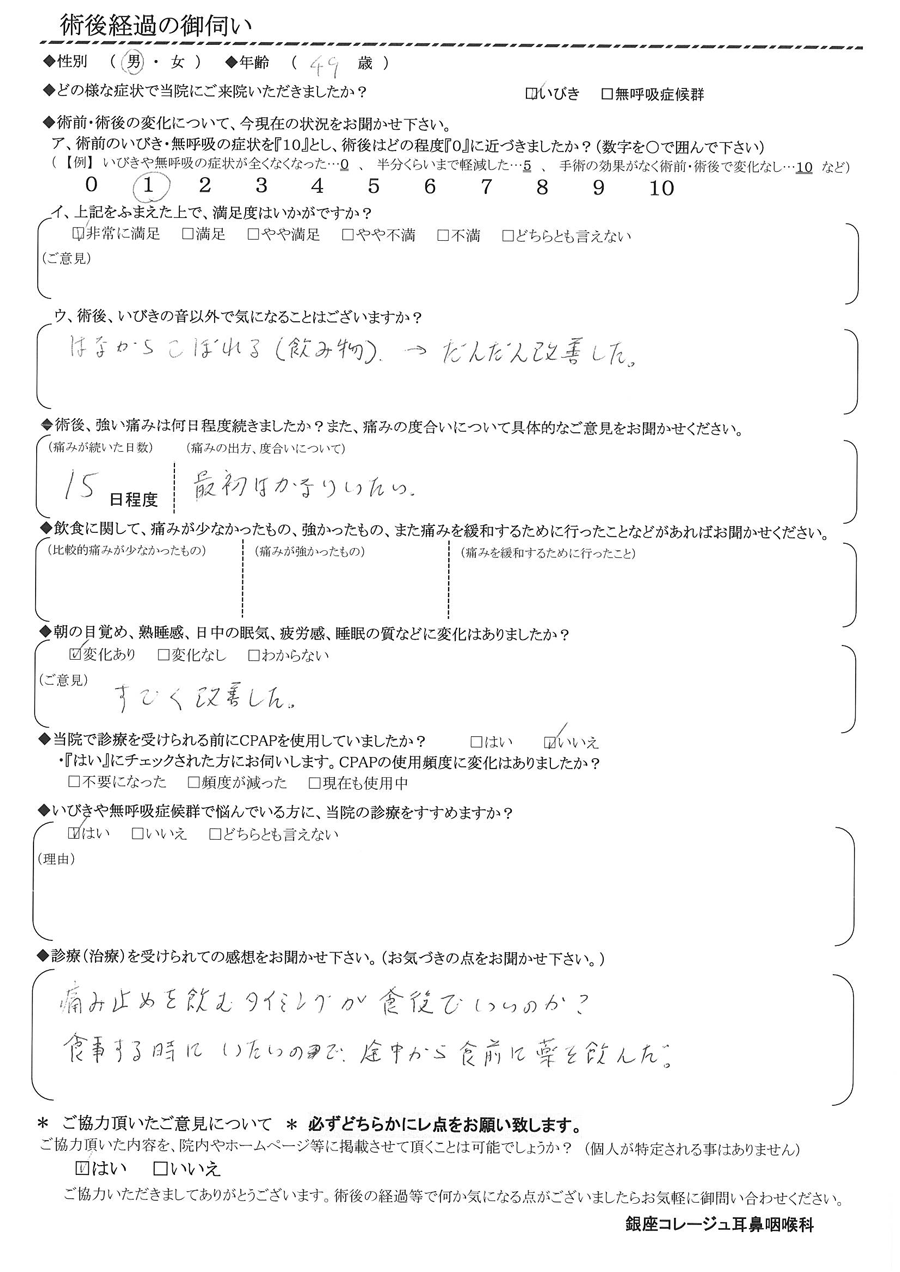 術後経過の御伺い
◆性別 （ 男 ・ 女 ） ◆年齢 （ 49 歳 ）
◆どの様な症状で当院にご来院いただきましたか？ ☑いびき □無呼吸症候群
◆術前・術後の変化について、今現在の状況をお聞かせ下さい。
ア、術前のいびき・無呼吸の症状を『10』とし、術後はどの程度『0』に近づきましたか？（数字を○で囲んで下さい）
（ 【例】 いびきや無呼吸の症状が全くなくなった…0 、 半分くらいまで軽減した…5 、 手術の効果がなく術前・術後で変化なし…10 など）
0 1 2 3 4 5 6 7 8 9 10
イ、上記をふまえた上で、満足度はいかがですか？
☑非常に満足 □満足 □やや満足 □やや不満 □不満 □どちらとも言えない
（ご意見）
ウ、術後、いびきの音以外で気になることはございますか？
はなからこぼれる（飲み物）. → だんだん改善した。
◆術後、強い痛みは何日程度続きましたか？また、痛みの度合いについて具体的なご意見をお聞かせください。
（痛みが続いた日数） （痛みの出方、度合いについて）
15 日程度 最初はかなりいたい.
◆飲食に関して、痛みが少なかったもの、強かったもの、また痛みを緩和するために行ったことなどがあればお聞かせください。
（比較的痛みが少なかったもの） （痛みが強かったもの） （痛みを緩和するために行ったこと）
◆朝の目覚め、熟睡感、日中の眠気、疲労感、睡眠の質などに変化はありましたか？
☑変化あり □変化なし □わからない
（ご意見）
すごく改善した。
◆当院で診療を受けられる前にCPAPを使用していましたか？ □はい ☑いいえ
・『はい』にチェックされた方にお伺いします。CPAPの使用頻度に変化はありましたか？
□不要になった □頻度が減った □現在も使用中
◆いびきや無呼吸症候群で悩んでいる方に、当院の診療をすすめますか？
☑はい □いいえ □どちらとも言えない
（理由）
◆診療（治療）を受けられての感想をお聞かせ下さい。（お気づきの点をお聞かせ下さい。）
痛み止めを飲むタイミングが食後でいいのか？
食事する時にいたいので、途中から食前に薬を飲んだ。
＊ ご協力頂いたご意見について ＊ 必ずどちらかにレ点をお願い致します。
ご協力頂いた内容を、院内やホームページ等に掲載させて頂くことは可能でしょうか？ （個人が特定される事はありません）
☑はい □いいえ
ご協力いただきましてありがとうございます。術後の経過等で何か気になる点がございましたらお気軽に御問い合わせください。
銀座コレージュ耳鼻咽喉科